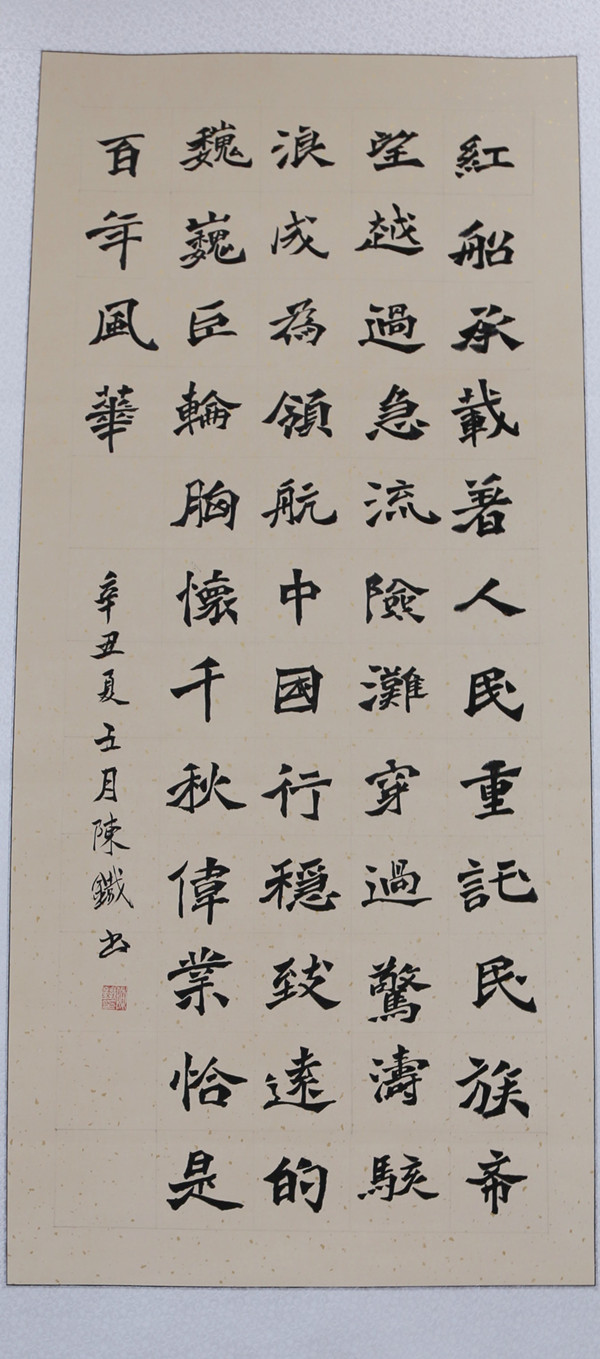 紅船承載著人民重託民族希
望越過急流險灘穿過驚濤駭
浪成為領航中國行穩致遠的
巍巍巨輪胸懷千秋偉業恰是
百年風華
辛丑夏五月陳鐵书